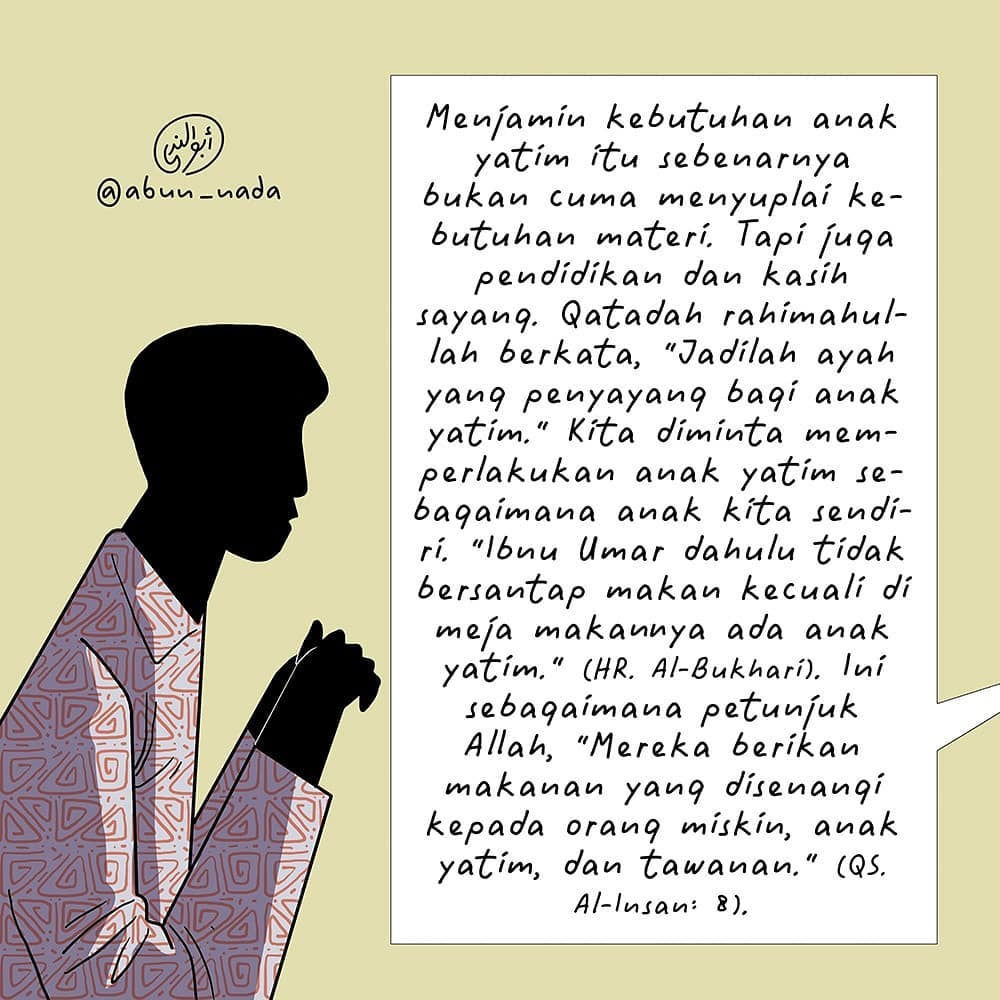 أبو الندى
@abun_nada
Menjamin kebutuhan anak
yatim itu sebenarnya
bukan cuma menyuplai ke-
butuhan materi. Tapi juga
pendidikan dan kasih
sayang. Qatadah rahimahul-
lah berkata, "Jadilah ayah
yang penyayang bagi anak
yatim." Kita diminta mem-
perlakukan anak yatim se-
bagaimana anak kita sendi-
ri. "Ibnu Umar dahulu tidak
bersantap makan kecuali di
meja makannya ada anak
yatim." (HR. Al-Bukhari). Ini
sebagaimana petunjuk
Allah, "Mereka berikan
makanan yang disenangi
kepada orang miskin, anak
yatim, dan tawanan." (QS.
Al-Insan: 8).